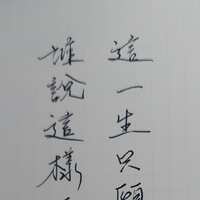 這一生只願
誰說這樣